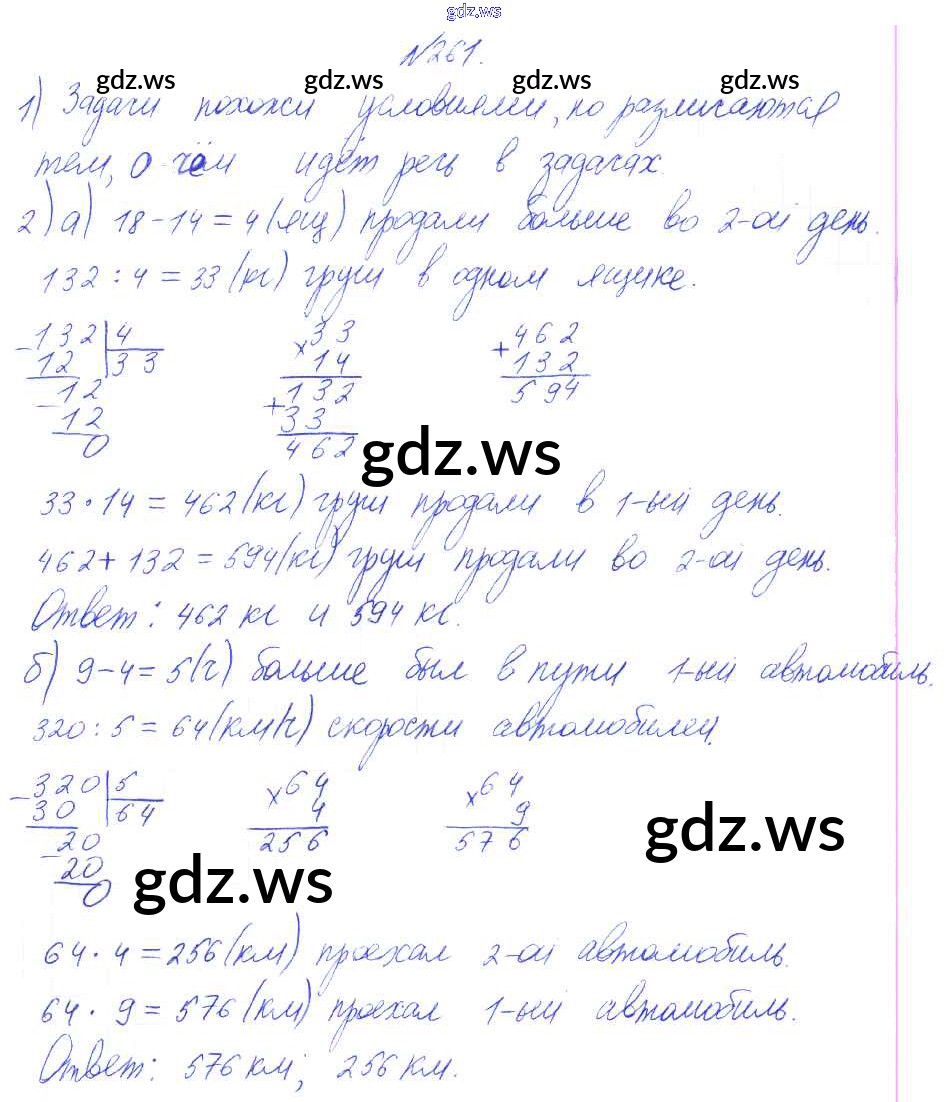 gdz.ws
№261.
gdz.ws gdz.ws gdz.ws
1) Задачи похожи условиями, но различаются
тем, о чём идёт речь в задачах.
2) а) 18-14=4(ящ) продали больше во 2-ой день.
132:4=33(кг) груш в одном ящике.
-132|4 ×33 +462
12 33 14 132
-12 132 594
12 +33
0 462
gdz.ws
33·14=462(кг) груш продали в 1-ый день.
462+132=594(кг) груш продали во 2-ой день.
Ответ: 462 кг и 594 кг.
б) 9-4=5(ч) больше был в пути 1-ый автомобиль.
320:5=64(км/ч) скорости автомобилей.
-320|5 ×64 ×64
30 64 4 9
-20 256 576
20
0
gdz.ws gdz.ws
64·4=256(км) проехал 2-ой автомобиль.
64·9=576(км) проехал 1-ый автомобиль.
Ответ: 576 км; 256 км.